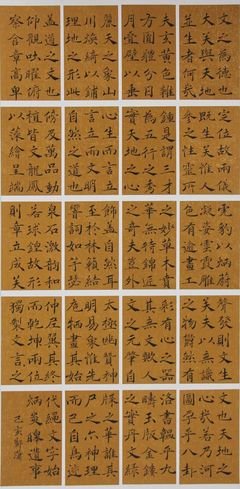 文之為德也
大矣與天地
並生者何哉
夫玄黃色雜
方圓體分日
月疊璧以垂
麗天之象山
川煥綺以鋪
理地之形此
蓋道之文也
仰觀吐曜俯
察含章高卑
定位故兩儀
既生矣惟人
參之性靈所
鍾是謂三才
為五行之秀
實天地之心
心生而言立
言立而文明
自然之道也
傍及萬品動
植皆文龍鳳
以藻繪呈瑞
虎豹以炳蔚
凝姿雲霞雕
色有逾畫工
之妙草木賁
華無待錦匠
之奇夫豈外
飾蓋自然耳
至於林籟結
響調如竽瑟
泉石激韻和
若球鍠故形
則章立成矣
聲發則文生
矣夫以無識
之物鬱然有
彩有心之器
其無文歟人
文之元肇自
太極幽贊神
明易象惟先
庖犧畫其始
仲尼翼其終
而乾坤兩位
獨製文言言之
文也天地之
心哉若乃河
圖孕乎八卦
洛書韞乎九
疇玉版金鏤
之實丹文綠
牒之華誰其
尸之亦神理
而已自鳥跡
代繩文字始
炳炎皞遺事
己亥